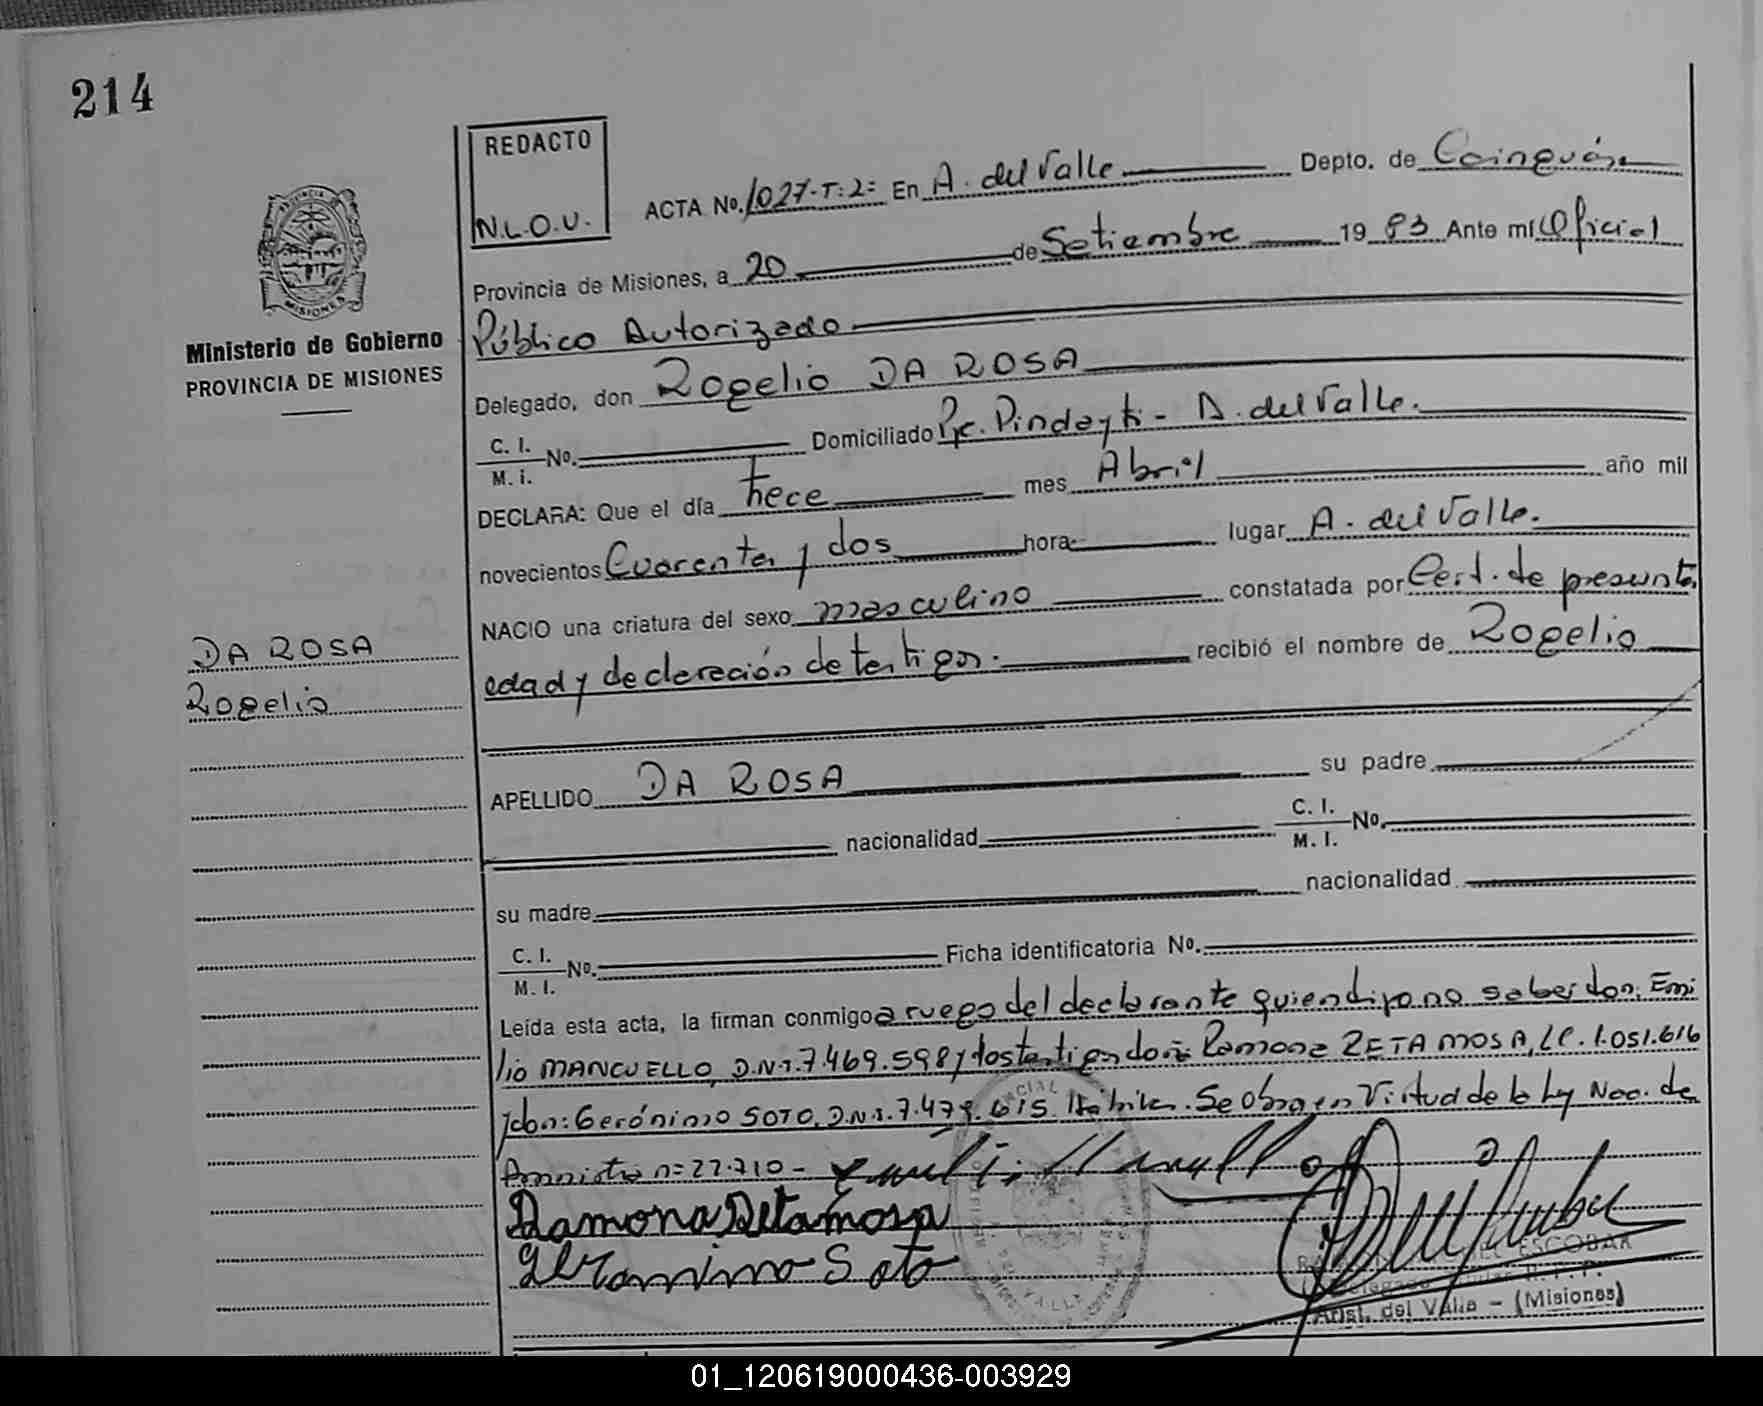 214
REDACTO
N.L.O.U.
ACTA No. 1027-T:2= En A. del Valle Depto. de Cainguás
Provincia de Misiones, a 20 de Setiembre 1983 Ante mí Oficial
Público Autorizado
Ministerio de Gobierno
PROVINCIA DE MISIONES
MISIONES
Delegado, don Rogelio DA ROSA
C. I.
M. i. No. Domiciliado Pje. Pindayti - A. del Valle.
DECLARA: Que el día trece mes Abril año mil
novecientos Cuarenta y dos hora lugar A. del Valle.
NACIO una criatura del sexo masculino constatada por Cert. de presunta
edad y declaración de testigos. recibió el nombre de Rogelio
DA ROSA
Rogelio
APELLIDO DA ROSA su padre
nacionalidad C. I.
M. I. No.
su madre nacionalidad
C. I.
M. I. No. Ficha identificatoria No.
Leída esta acta, la firman conmigo a ruego del declarante quien dijo no saber don: Emi
lio MANCUELLO, D.N.I. 7.469.598 y los testigos doña Ramona ZETA MOSA, LC. 1.051.616
y don: Gerónimo SOTO, D.N.I. 7.479.615. Se Obra en Virtud de la Ley Nac. de
Amnistía n= 22.710-
Ramona Zeta mosa
Geronimo Soto
ESCOBAR
Arist. del Valle - (Misiones)
01_120619000436-003929